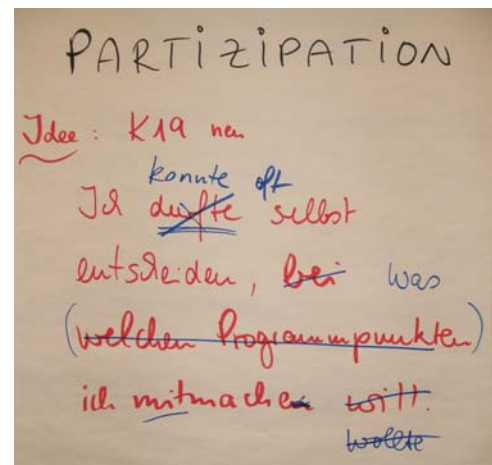 PARTiZiPATiON
Idee: K19 neu
konnte oft
Ich durfte selbst
entscheiden, bei was
(welchen Programmpunkten)
ich mitmache will.
wollte